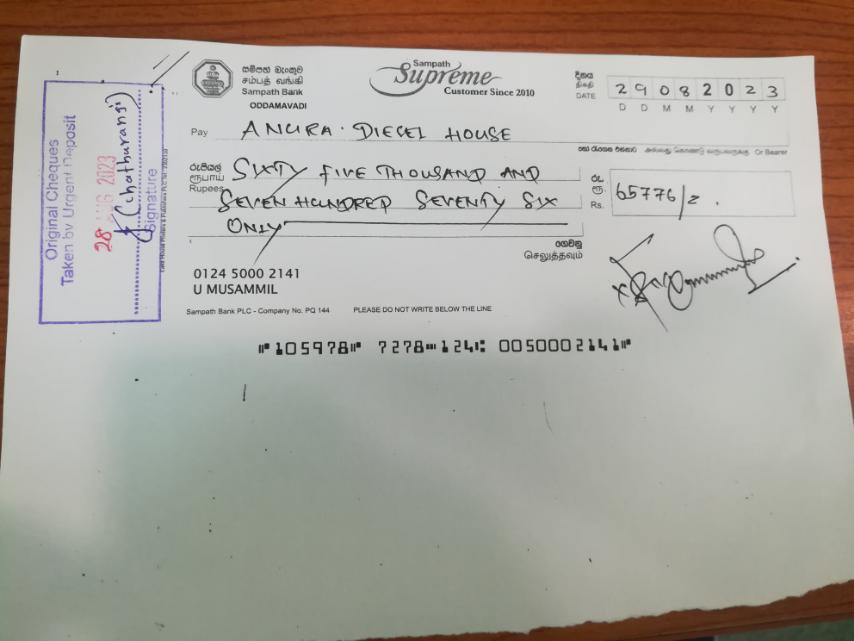 සම්පත් බැංකුව
சம்பத் வங்கி
Sampath Bank
ODDAMAVADI
Sampath
Supreme
Customer Since 2010
දිනය
திகதி
DATE
2 9 0 8 2 0 2 3
D D M M Y Y Y Y
Pay ANURA DIESEL HOUSE
Or Bearer
රුපියල්
ரூபாய்
Rupees
SIXTY FIVE THOUSAND AND
SEVEN HUNDRED SEVENTY SIX
ONLY
රු.
ரூ.
Rs.
65776/=.
ගෙවනු
செலுத்தவும்
0124 5000 2141
U MUSAMMIL
Sampath Bank PLC - Company No. PQ 144 PLEASE DO NOT WRITE BELOW THE LINE
⑈105978⑈ 7278⑉124⑆ 0050002141⑈
Original Cheques
Taken by Urgent Deposit
28 AUG 2023
(Chathurangi)
Signature